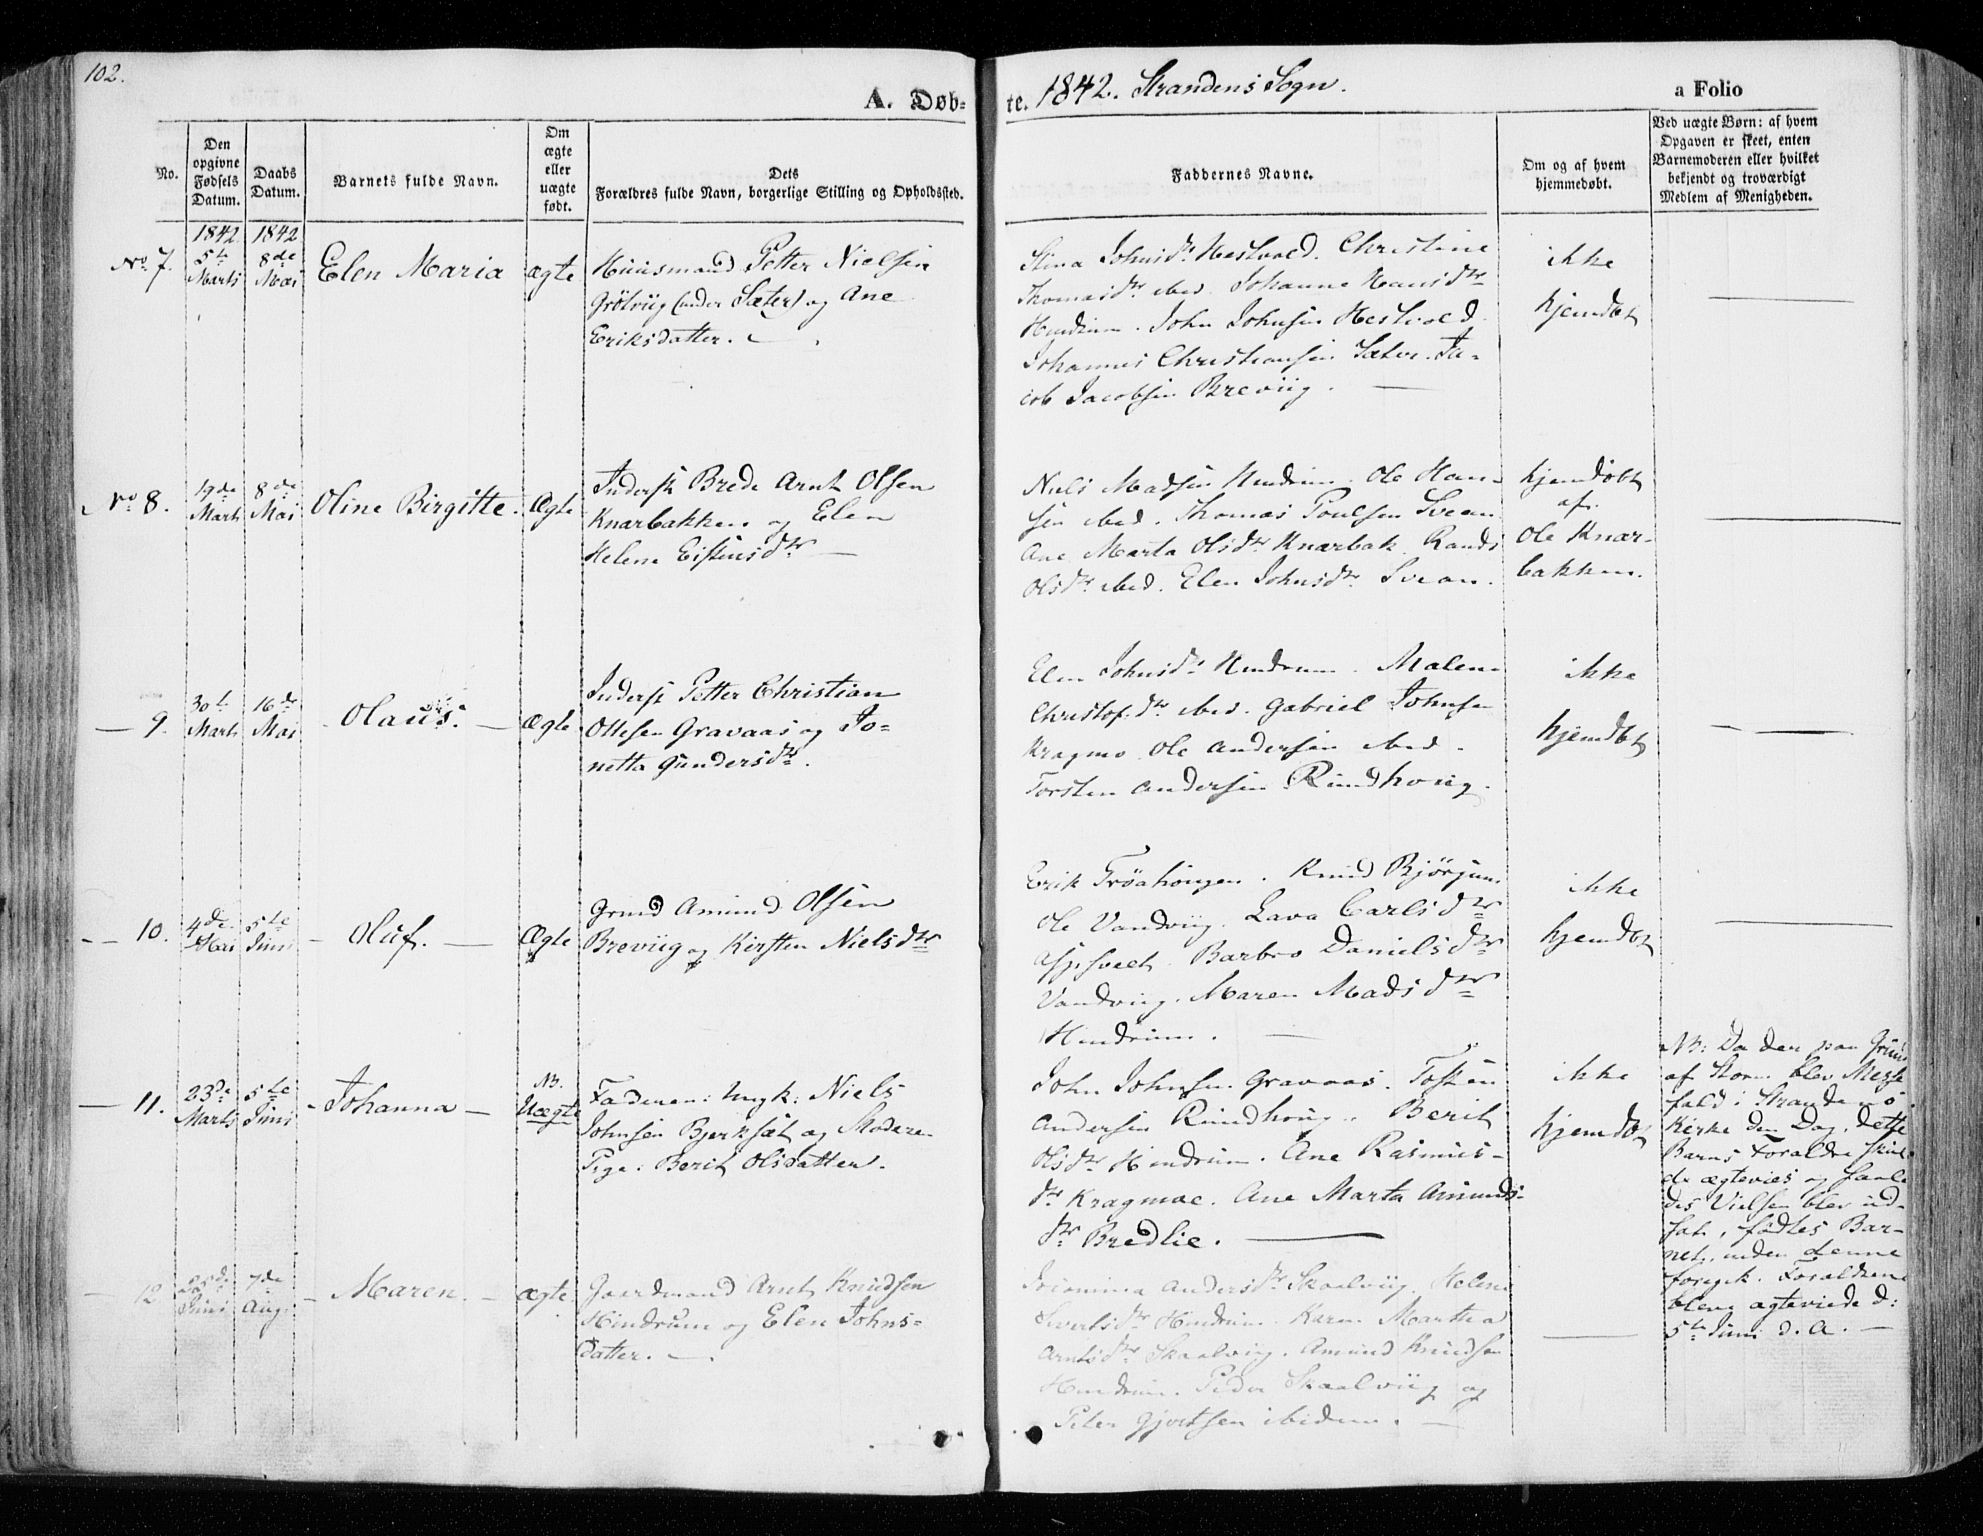 102.
A. Døb-
te. 1842. Strandens Sogn.
a Folio
No.
Den
opgivne
Fødsels
Datum.
Daabs
Datum.
Barnets fulde Navn.
Om
ægte
eller
uægte
født.
Dets
Forældres fulde Navn, borgerlige Stilling og Opholdssted.
Faddernes Navne.
Om og af hvem
hjemmedøbt.
Ved uægte Børn: af hvem
Opgaven er skeet, enten
Barnemoderen eller hvilket
bekjendt og troværdigt
Medlem af Menigheden.
No. 7.
1842
5te
Marts
1842
8de
Mai
Elen Maria
ægte
Huusmand Petter Nielsen
Grötviig (under Sæter) og Ane
Eriksdatter.
Stina Johnsdr Hestvold. Christine
Thomasdr ibid. Johanne Hansdr
Hindrum. John Johnsen Hestvold
Johannes Christiansen Sæter. Ja-
cob Jacobsen Breviig.
ikke
hjemdøbt
No. 8.
19de
Marts
8de
Mai
Oline Birgitte.
Ægte
Inderst Brede Arnt Olsen
Knarbakken og Elen
Helene Eistensdr
Niels Madsen Hindrum. Ole Han-
sen ibid. Thomas Poulsen Svean
Ane Marta Olsdr Knarbak. Randi
Olsdr ibid. Elen Johnsdr. Svean.
hjemdøbt
af.
Ole Knar-
bakken.
9.
30te
Marts
16de
Mai
Olaus.
Ægte
Inderst Petter Christian
Ottesen Gravaas og Jo-
netta Gundersdr.
Elen Johnsdr Hindrum. Malena
Christof.dr ibid. Gabriel Johnsen
Kragmo. Ole Andersen ibid.
Torsten Andersen Rindhoug.
ikke
hjemdøbt
10.
4de
Mai
5te
Juni
Oluf.
Ægte
Grmd Amund Olsen
Breviig og Kirsten Nielsdr
Erik Tröahougen. Knud Bjørgum
Ole Vandviig. Lava Carlsdr
Barbro Danielsdr
Vandviig. Maren Madsdr
Hindrum.
ikke
hjemdøbt
11.
23de
Marts
5te
Juni
Johanna
NB.
Uægte
Faderen: Ungk: Niels
Johnsen Bjerksæt og Moderen
Pige: Berit Olsdatter.
John Johnsen Gravaas. Tosten
Andersen Rindhoug. Berit
Olsdr Hindrum. Ane Rasmus-
dr Kragmoe. Ane Marta Amunds-
dr Bredlie.
ikke
hjemdøbt
NB: Da der paa Grund
af Storm blev Messe
fald i Strandens
Kirke den Dag, dette
Barns Forældre skul-
de ægtevies og saale
des Vielsen blev ud-
sat, fødtes Bar-
net, inden denne
foregik. Forældrene
bleve ægteviede d:
5te Juni d. A.
12
25de
Juni
7de
Aug.
Maren.
ægte
Gaardmand Arnt Knudsen
Hindrum og Elen Johns-
datter.
Andersdr Skaalviig. Helena
Sivertsdr Hindrum. Karen Martha
Arntsdr Skaalviig. Amund Knudsen
Hindrum. Peder Skaalviig og
Peter Gjertsen ibidem.